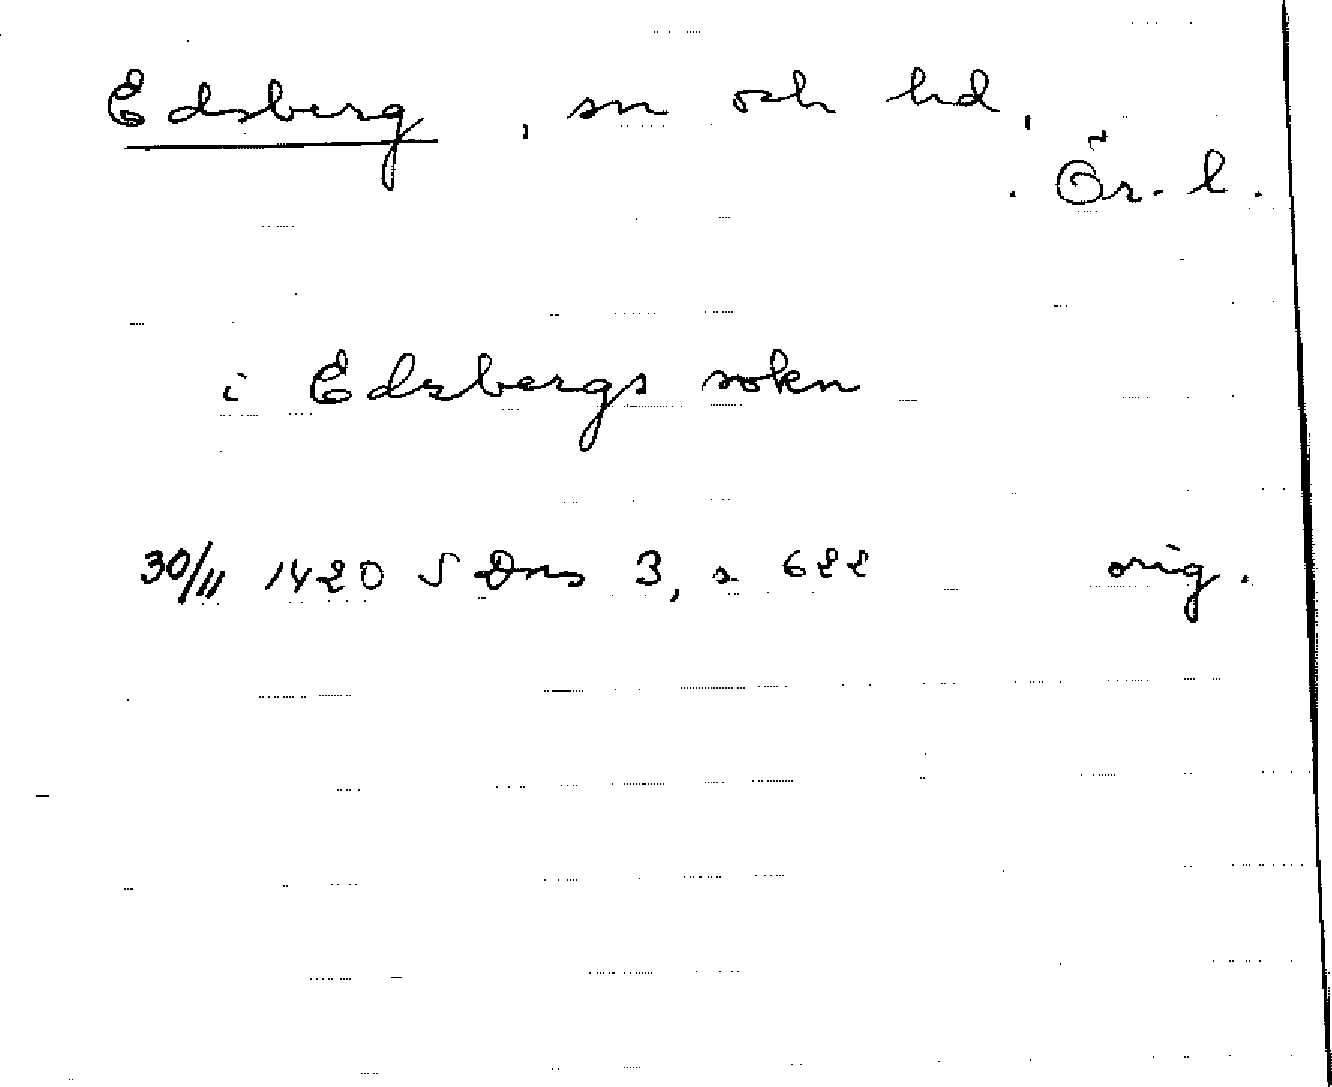 Edsberg, sn och hd,
Ör. l.
i Edzbergs sokn
30/11 1420 SDns 3, s 622 orig.